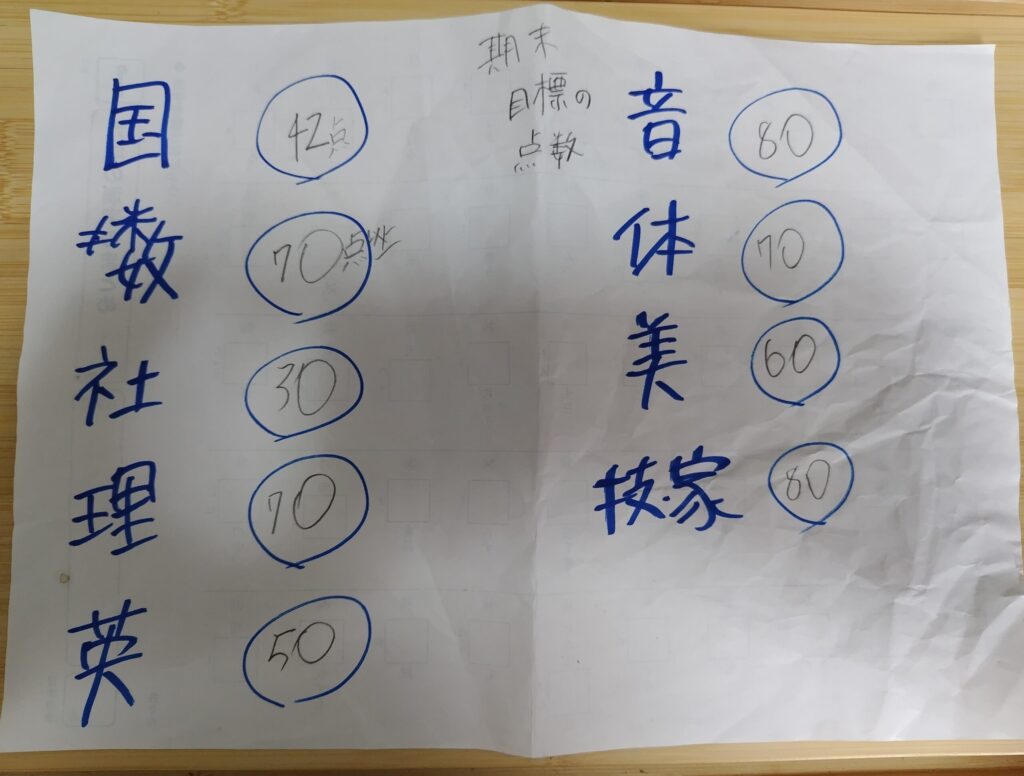 期末
目標の
点数
国 42点
数 70点
社 30
理 70
英 50
音 80
体 70
美 60
技・家 80